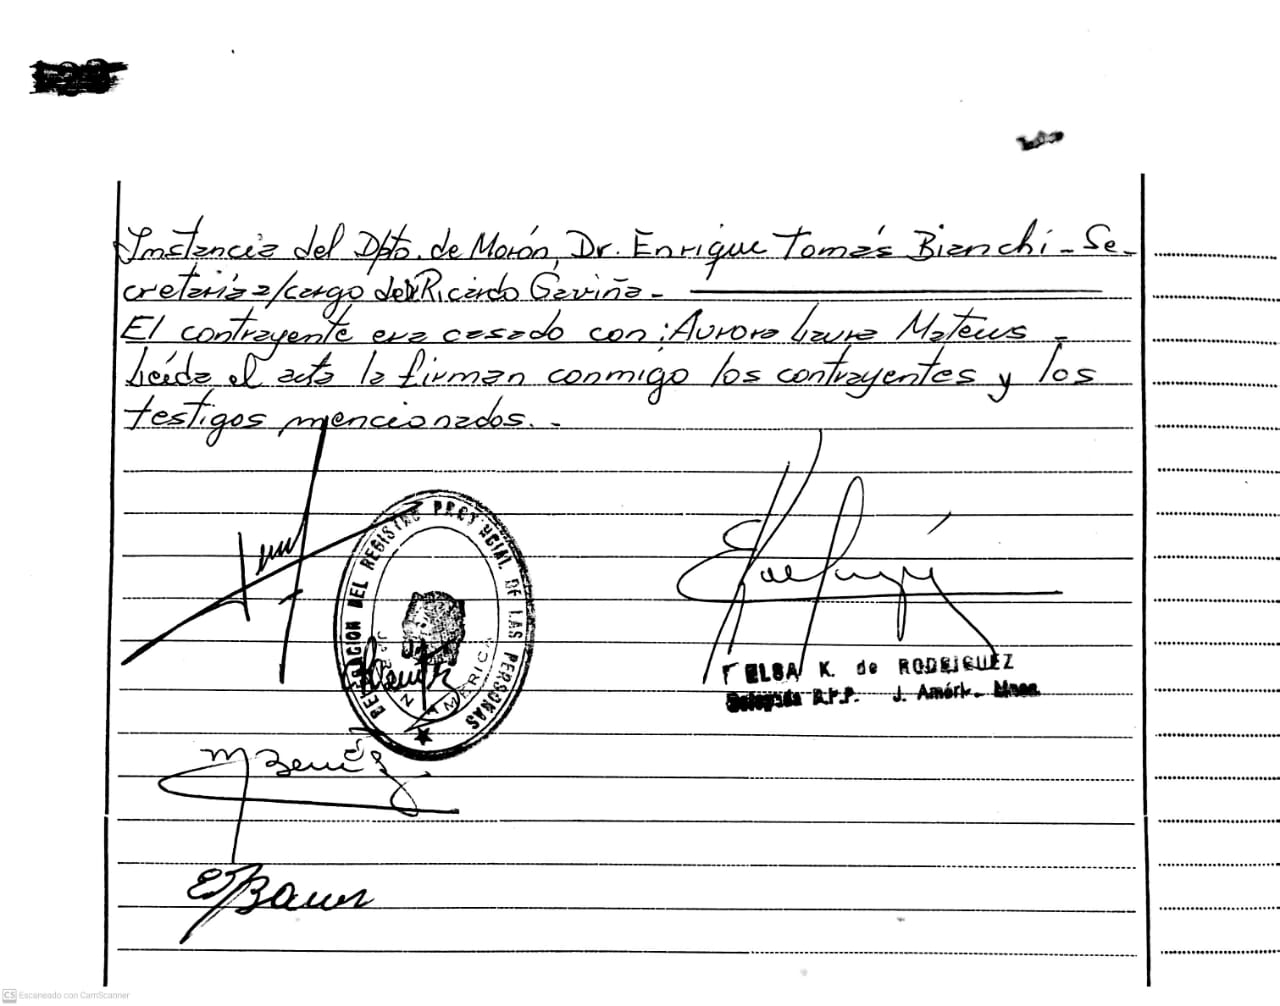 Instancia del Dpto. de Morón, Dr. Enrique Tomás Bianchi - Se-
cretaría a/cargo del Ricardo Gaviña.-
El contrayente era casado con: Aurora Laura Mateus -
Leída el acta la firman conmigo los contrayentes y los
testigos mencionados. -
DELEGACION DEL REGISTRO PROVINCIAL DE LAS PERSONAS
AMERICA
ELSA K. de RODRIGUEZ
Delegada R.P.P. J. Amérk.
CS Escaneado con CamScanner